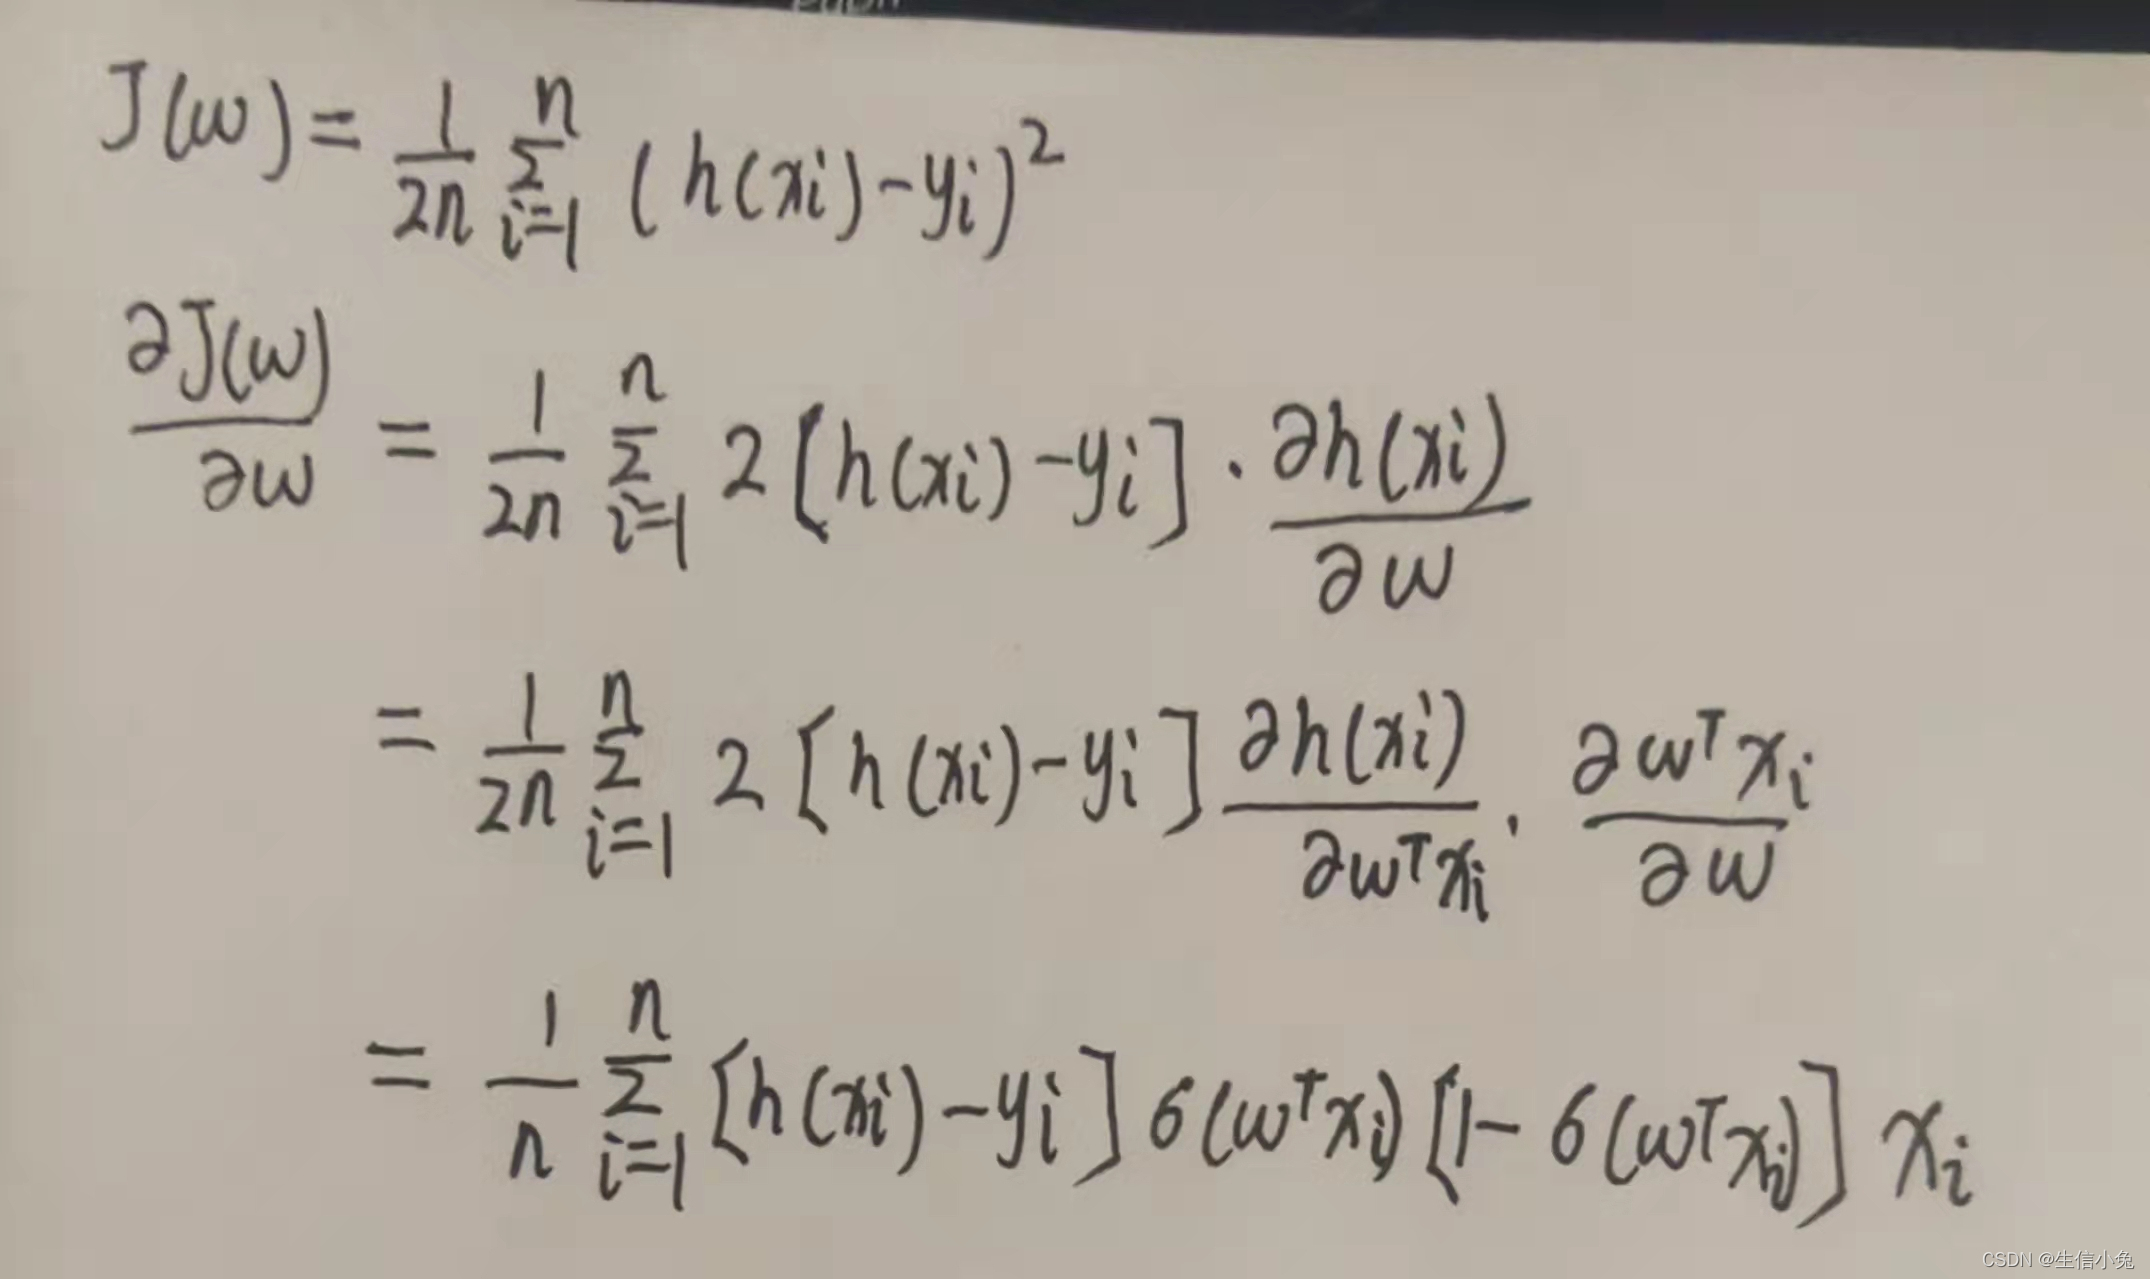 J(w) = \frac{1}{2n} \sum_{i=1}^{n} (h(xi) - yi)^2
\frac{∂J(w)}{∂w} = \frac{1}{2n} \sum_{i=1}^{n} 2 [h(xi) - yi] · \frac{∂h(xi)}{∂w}
= \frac{1}{2n} \sum_{i=1}^{n} 2 [h(xi) - yi] \frac{∂h(xi)}{∂w^T xi} · \frac{∂w^T xi}{∂w}
= \frac{1}{n} \sum_{i=1}^{n} [h(xi) - yi] σ(w^T xi) [1 - σ(w^T xi)] xi
CSDN @生信小兔